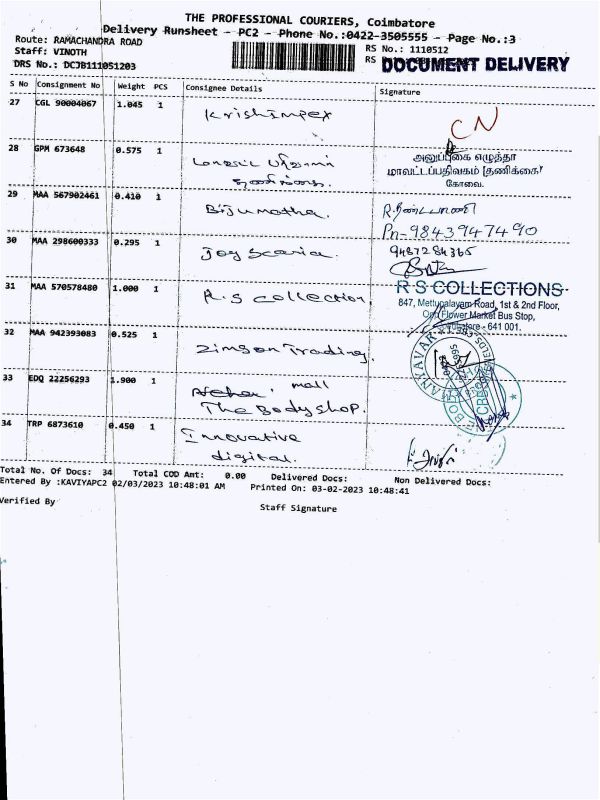 THE PROFESSIONAL COURIERS, Coimbatore
Delivery Runsheet - PC2 - Phone No.:0422-3505555 - Page No.:3
Route: RAMACHANDRA ROAD
RS No.: 1110512
Staff: VINOTH
RS
DOCUMENT DELIVERY
DRS No.: DCJB111051203
S No Consignment No Weight PCS Consignee Details Signature
27 CGL 90004067 1.045 1 Krishimpex CN
28 GPM 673648 0.575 1
அனுப்புகை எழுத்தர்
மாவட்டப்பதிவகம் (தணிக்கை)
கோவை.
29 MAA 567902461 0.410 1 Bijumatha.
Pn-9843947490
30 MAA 298600333 0.295 1 Joy scaria. 9487284365
31 MAA 570578480 1.000 1 R.S collection,
R S COLLECTIONS
847, Mettupalayam Road, 1st & 2nd Floor,
Opp Flower Market Bus Stop,
Coimbatore - 641 001.
32 MAA 942393083 0.525 1 Zimson Trading.
33 EDQ 22256293 1.900 1 mall
The Bodyshop.
34 TRP 6873610 0.450 1 Innovative
digital.
Total No. Of Docs: 34 Total COD Amt: 0.00 Delivered Docs: Non Delivered Docs:
Entered By :KAVIYAPC2 02/03/2023 10:48:01 AM Printed On: 03-02-2023 10:48:41
Verified By
Staff Signature